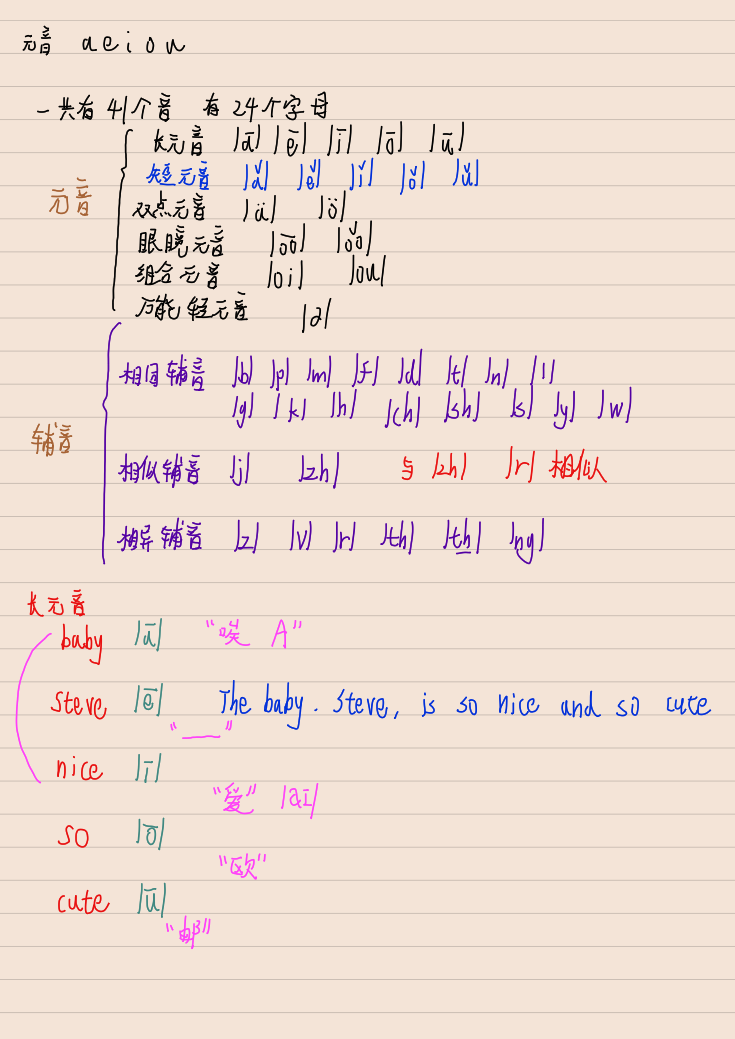 元音 a e i o u
一共有 41个音 有 24个字母
长元音 |ā| |ē| |ī| |ō| |ū|
短元音 |ă| |ĕ| |ĭ| |ŏ| |ŭ|
元音
双点元音 |ä| |ö|
眼睛元音 |o͞o| |o͝o|
组合元音 |oi| |ou|
万能轻元音 |ə|
相同辅音 |b| |p| |m| |f| |d| |t| |n| |l|
|g| |k| |h| |ch| |sh| |s| |y| |w|
辅音
相似辅音 |j| |zh| 与 |zh| |r| 相似
相异辅音 |z| |v| |r| |th| |th| |ng|
长元音
baby |ā| "唉 A"
Steve |ē| The baby. Steve, is so nice and so cute
"一"
nice |ī|
"爱" |aɪ|
so |ō|
"欧"
cute |ū|
"邮"